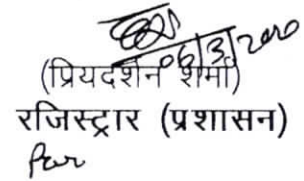 06/3/2020
(प्रियदर्शन शर्मा)
रजिस्ट्रार (प्रशासन)